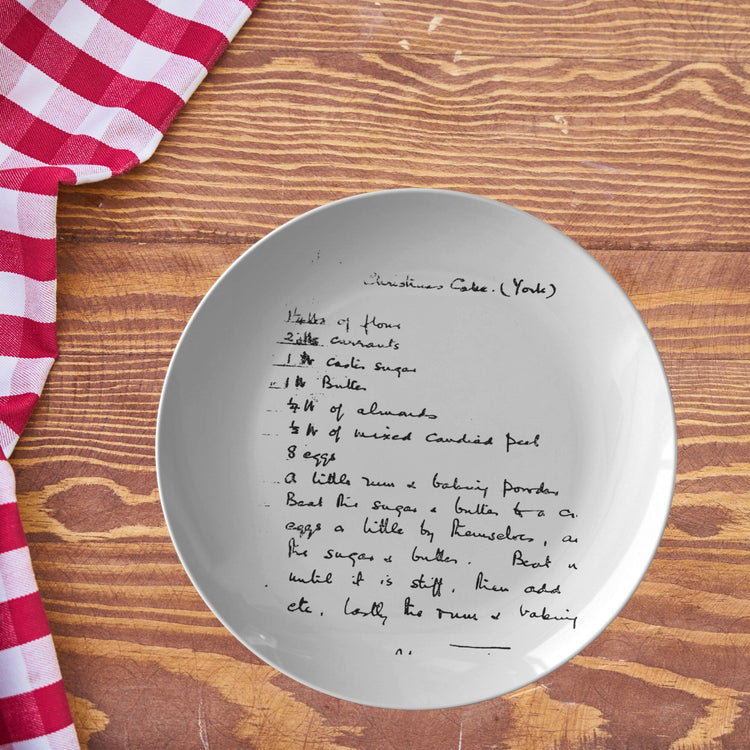 Christmas Cake. (York)
1¼ lb of flour
2 lbs currants
1 lb Castor sugar
1 lb Butter
¼ lb of almonds
½ lb of mixed Candied peel
8 eggs
A little rum & baking powder
Beat the sugar & butter to a cr
eggs a little by themselves, a
the sugar & butter. Beat
until it is stiff, then add
etc. lastly the rum & baking